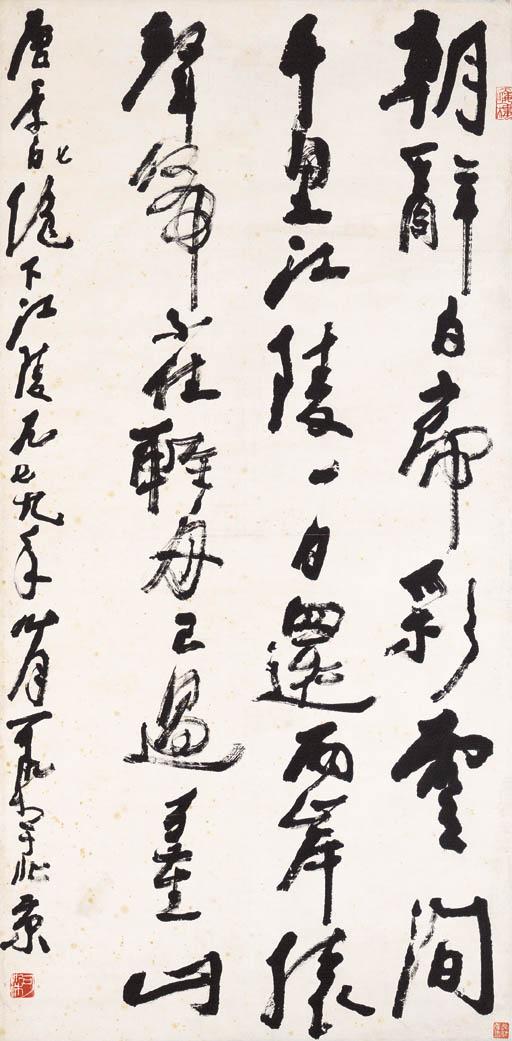 朝辭白帝彩雲間
千里江陵一日還兩岸猿
聲啼不住輕舟已過萬重山
唐李白七絕下江陵一九七九年月可染書于北京
可染